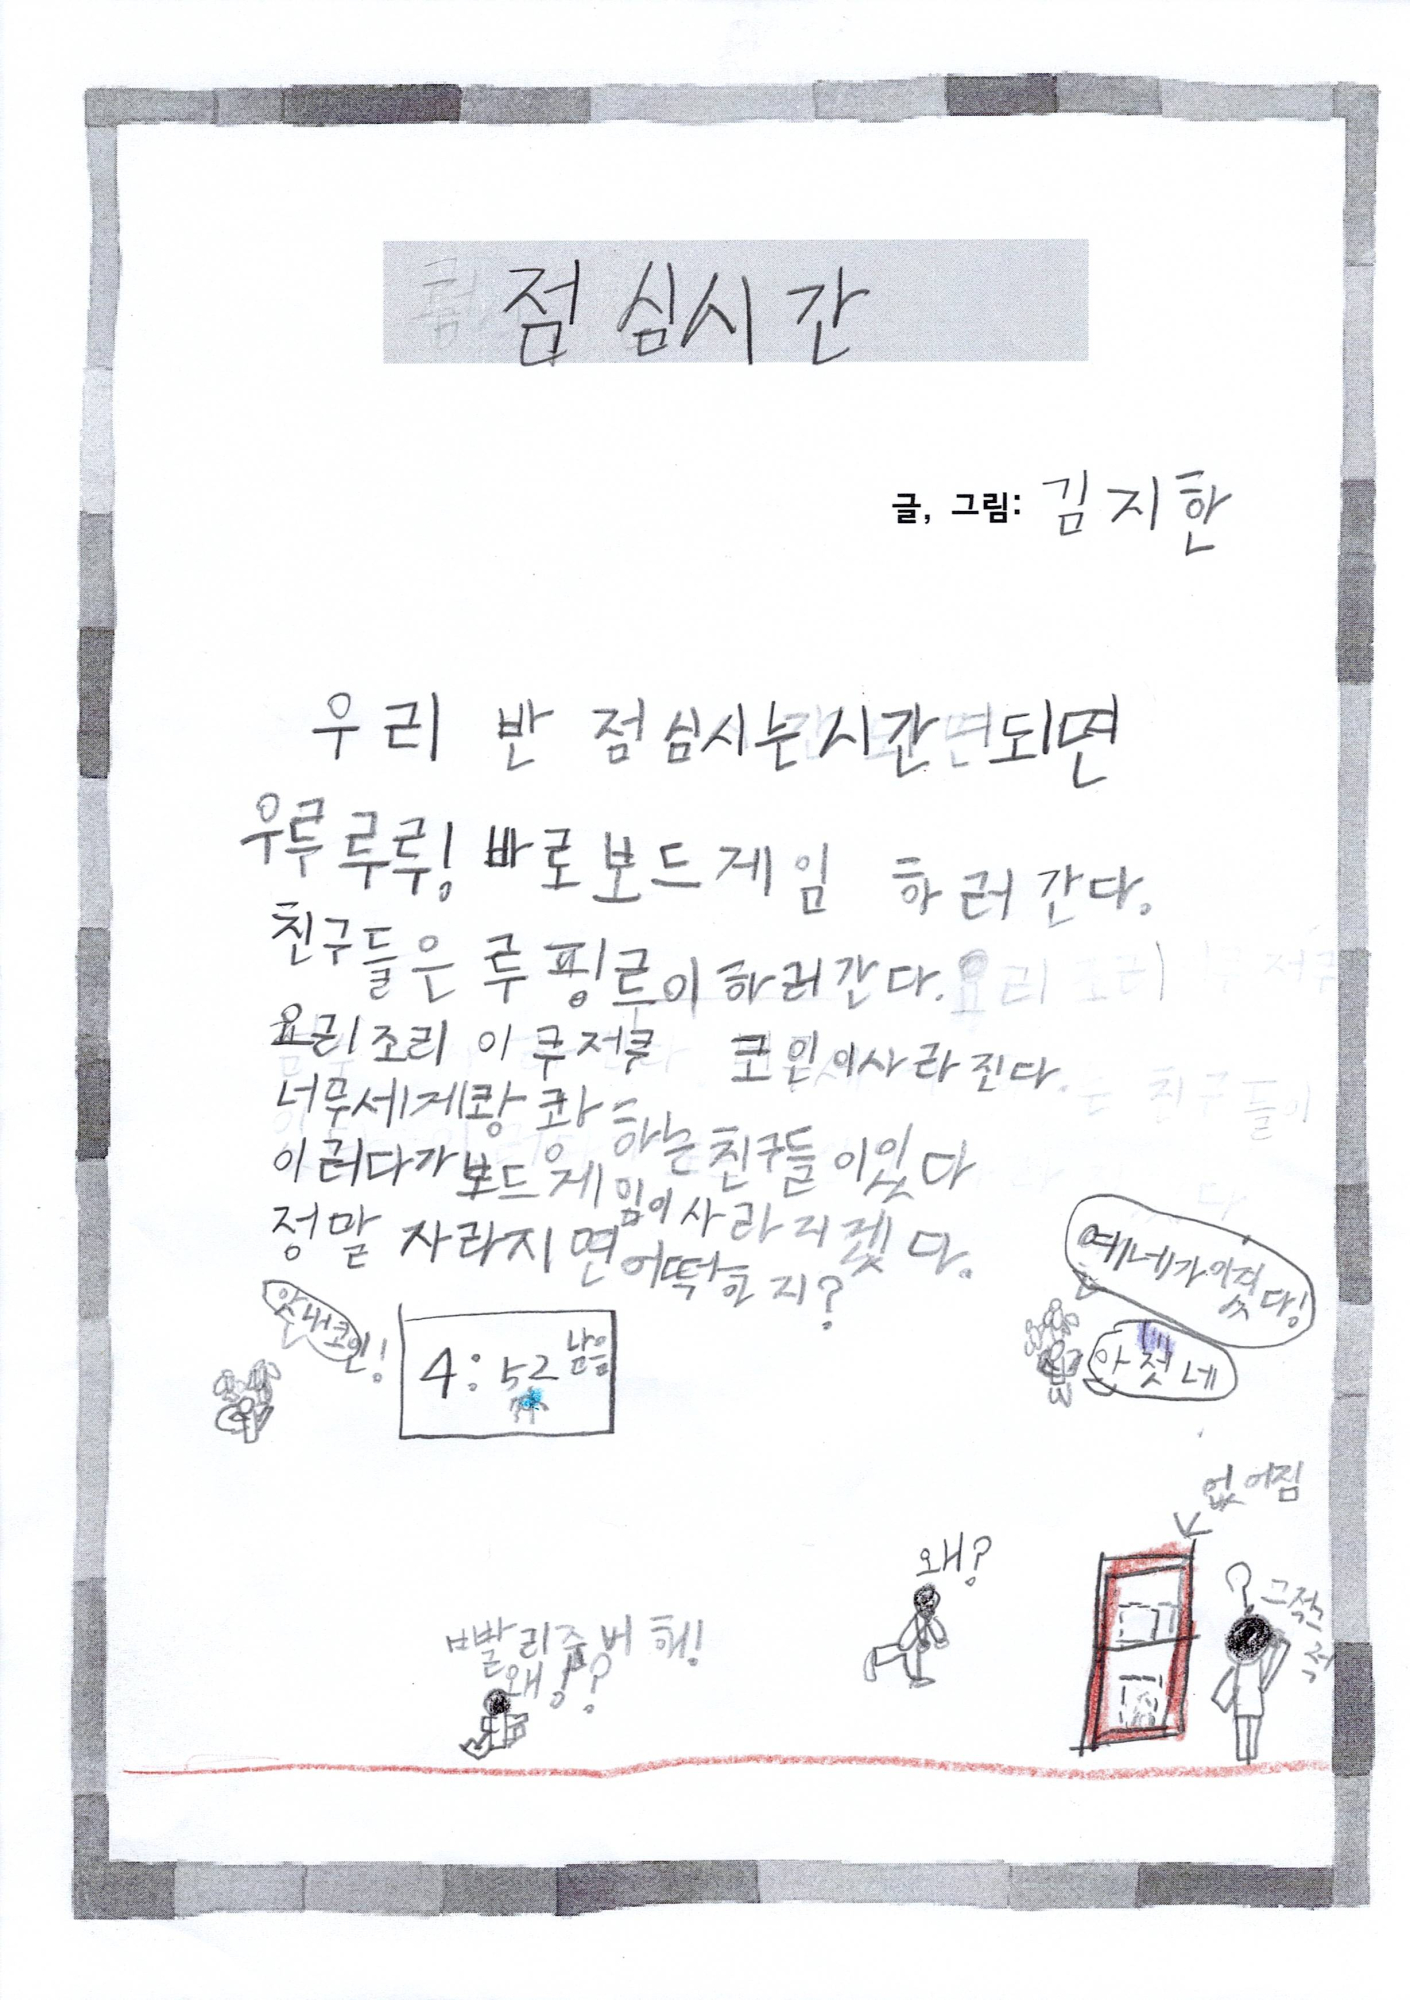 점심시간
글, 그림: 김지한
우리 반 점심시는시간되면
우루루루! 바로보드게임 하러간다.
친구들은 루핑루이하러간다.
요리조리 이쿠저쿠 코인이사라진다.
너무세게쾅쾅하는친구들이있다
이러다가보드게임이사라지겠다.
정말 사라지면어떡하지?
앗내코인!
4:52 남음
예네가이겼다!
아 젔네
없어짐
왜?
그적
그적
빨리준비해!
왜??